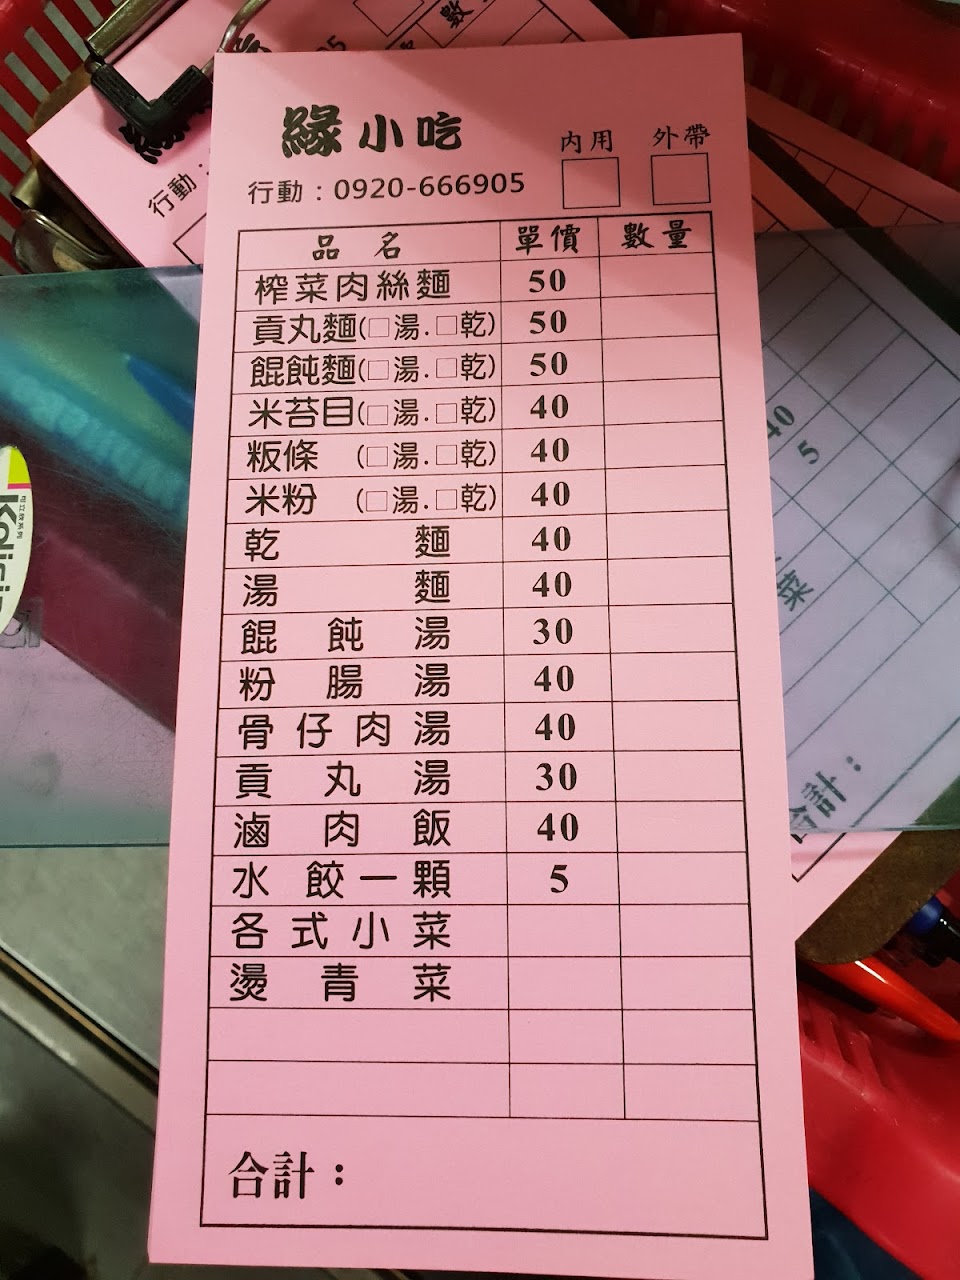 緣小吃
內用 外帶
行動：0920-666905
品名 單價 數量
榨菜肉絲麵 50
貢丸麵(□湯.□乾) 50
餛飩麵(□湯.□乾) 50
米苔目(□湯.□乾) 40
粄條 (□湯.□乾) 40
米粉 (□湯.□乾) 40
乾麵 40
湯麵 40
餛飩湯 30
粉腸湯 40
骨仔肉湯 40
貢丸湯 30
滷肉飯 40
水餃一顆 5
各式小菜
燙青菜
合計：
行動：
數
40
5
菜
合計：